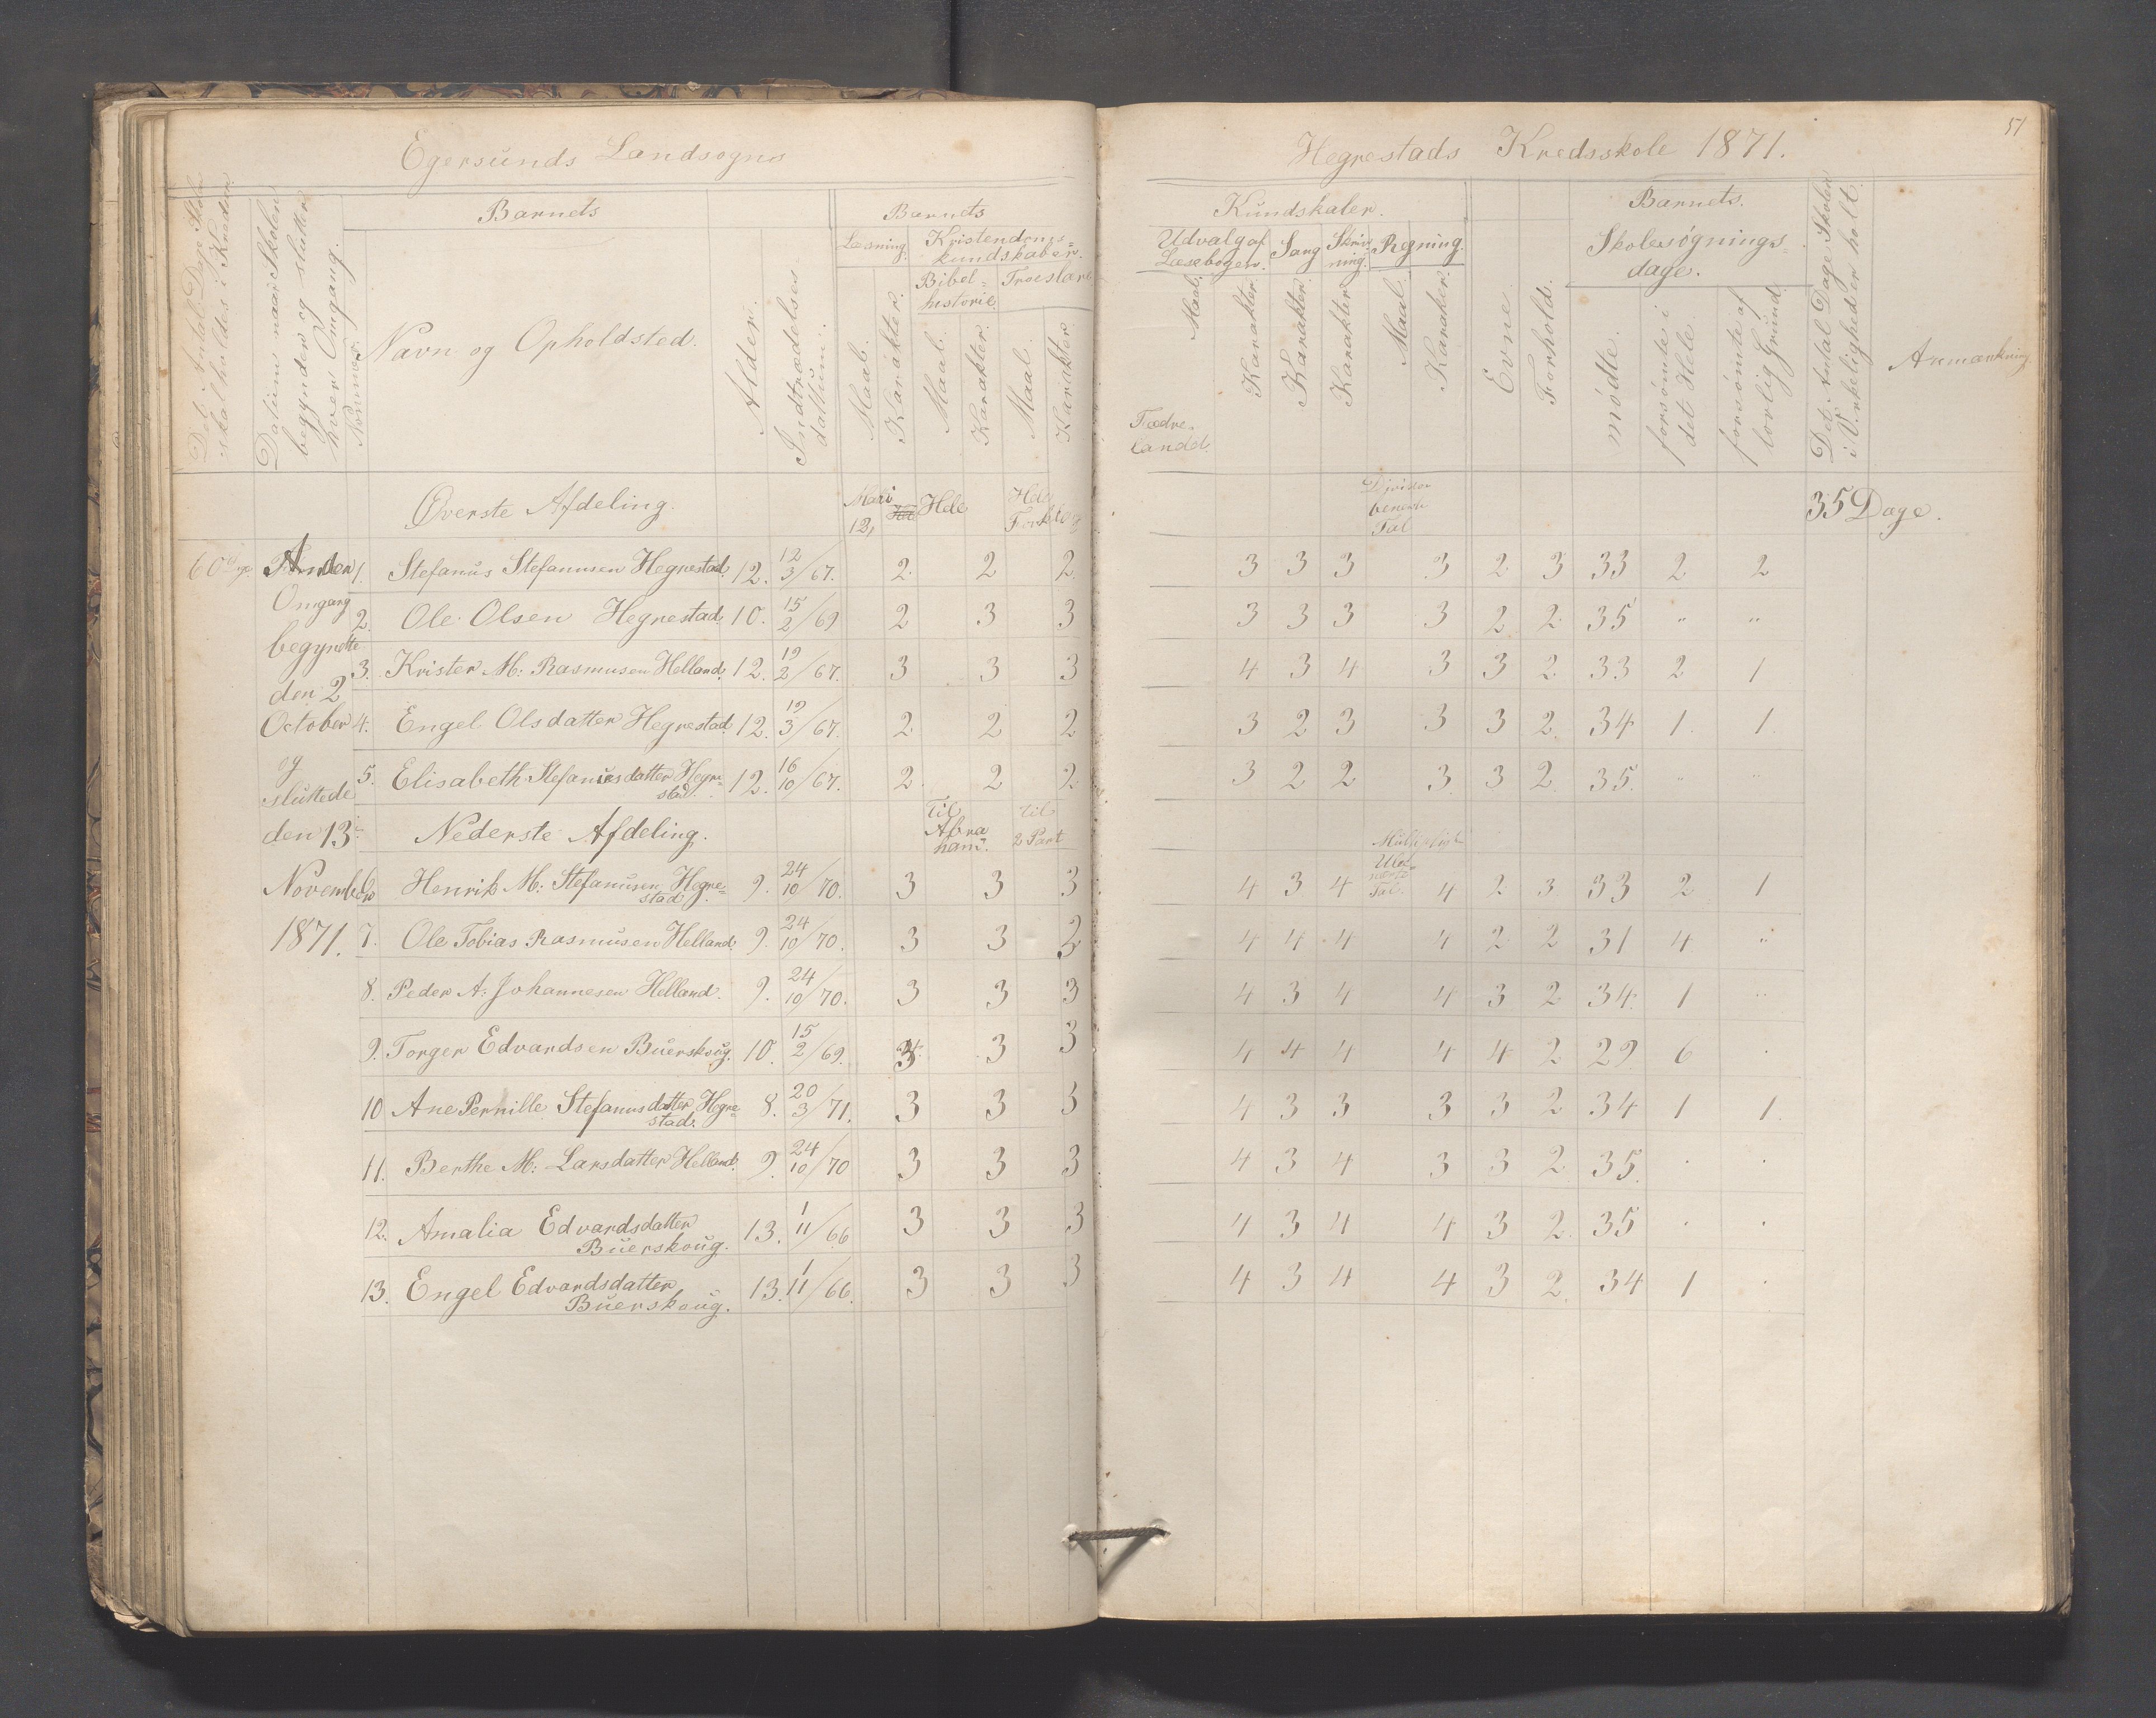 Egersunds Landsogns
Hegrestads Kredsskole 1871.
51
Det Antal Dage Skole skal holdes i Kredsen.
Datum naar Skolen begynder og slutter hver Omgang.
Nummer
Barnets
Navn og Opholdsted.
Alder.
Indtrædelses datum.
Barnets
Læsning.
Kristendoms=
kundskaber.
Bibel=
historie.
Troeslære
Maal. Karakter. Maal. Karakter. Maal. Karakter
Kundskaber.
Udvalg af
Læsebogen.
Sang
Skriv
ning.
Regning.
Maal. Karakter. Karakter. Karakter Maal. Karakter.
Fædre.
landet.
Evne.
Forhold.
Barnets.
Skolesøgnings=
dage.
mødte.
forsømte i det Hele.
forsømte af lovlig Grund.
Det Antal Dage Skolen i Virkeligheden holdt.
Anmærkning
Øverste Afdeling. 12, Hele Hele 35 Dage.
Tal
60 Dage Anden 1. Stefanus Stefanusen Hegrestad. 12. 12/3/67. 2. 2 2 3 3 3 3 2 3 33 2 2
Omgang 2. Ole Olsen Hegrestad. 10. 15/2/69 2 3 3 3 3 3 3 2 2 35 " "
begyndte 3. Krister M: Rasmusen Helland. 12. 19/2/67. 3 3 3 4 3 4 3 3 2 33 2 1
den 2
October 4. Engel Olsdatter Hegrestad. 12. 19/3/67. 2 2 2 3 2 3 3 3 2. 34 1. 1.
og 5. Elisabeth Stefanusdatter Hegre=
stad. 12. 16/10/67. 2. 2 2 3 2 2 3. 3 2 35. " "
sluttede
den 13 Nederste Afdeling. Til Abra
ham. til 2 Part
November 6. Henrik M: Stefanusen Hegre=
stad. 9. 24/10/70. 3 3 3 4 3 4 Tal. 4 2 3 33 2 1
1871. 7. Ole Tobias Rasmusen Helland. 9. 24/10/70. 3 3 2 4 4 4 4 2 2 31 4 "
8. Peder A: Johannesen Helland. 9. 24/10/70. 3 3 3 4 3 4 4 3 2 34. 1 "
9. Torger Edvardsen Buerskoug. 10. 15/2/69. 3 3 3 4 4 4 4 4 2 29 6 .
10 Ane Pernille Stefanusdatter Hegre=
stad. 8. 20/3/71. 3 3 3 4 3 3 3 3 2 34 1 1.
11. Berthe M: Larsdatter Helland. 9. 24/10/70 3 3 3 4 3 4 3 3 2 35. . .
12. Amalia Edvardsdatter
Buerskoug. 13. 1/11/66 3 3 3 4 3 4 4 3 2. 35 . .
13. Engel Edvardsdatter
Buerskoug. 13. 1/11/66. 3 3 3 4 3 4 4 3 2. 34 1 .